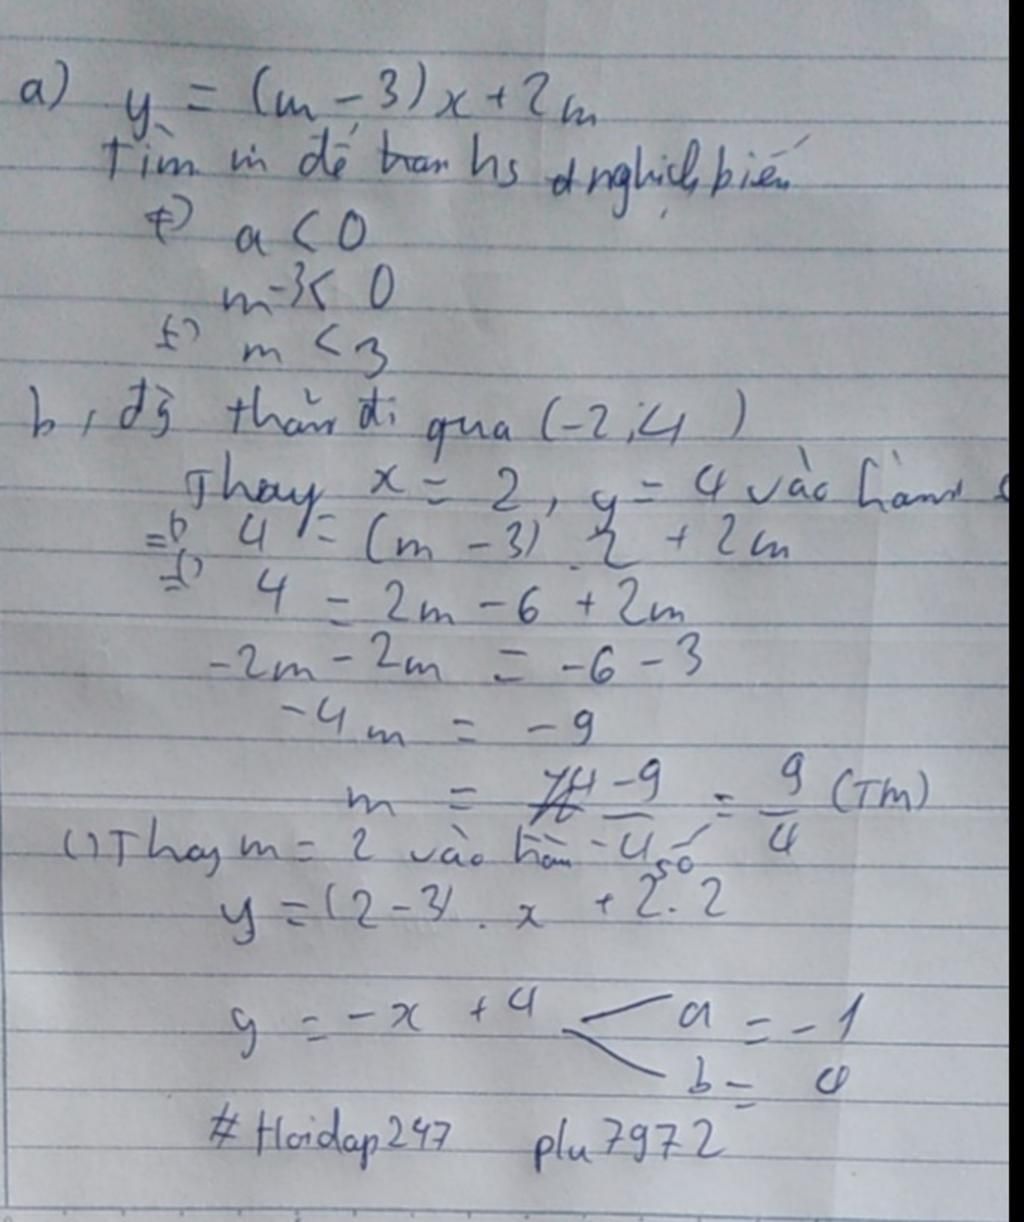 a) y = (m - 3)x + 2m
Tìm m để hs nghịch biến
a < 0
m-3< 0
m < 3
b, đi qua (-2;4)
Thay x = 2, y = 4 vào hàm
=> 4 = (m - 3) . 2 + 2m
4 = 2m - 6 + 2m
-2m - 2m = -6 - 3
-4m = -9
m = -9/-4 = 9/4 (TM)
c) Thay m = 2 vào hàm số
y = (2-3) . x + 2.2
y = -x + 4 a = -1
b = 4
#Hoidap247 plu7972